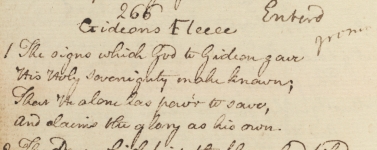 266
Gideons Fleece
Enterd
1 The signs which God to Gideon gave
His Holy sovereignty made known;
That He alone has pow'r to save,
And claims the glory as his own.